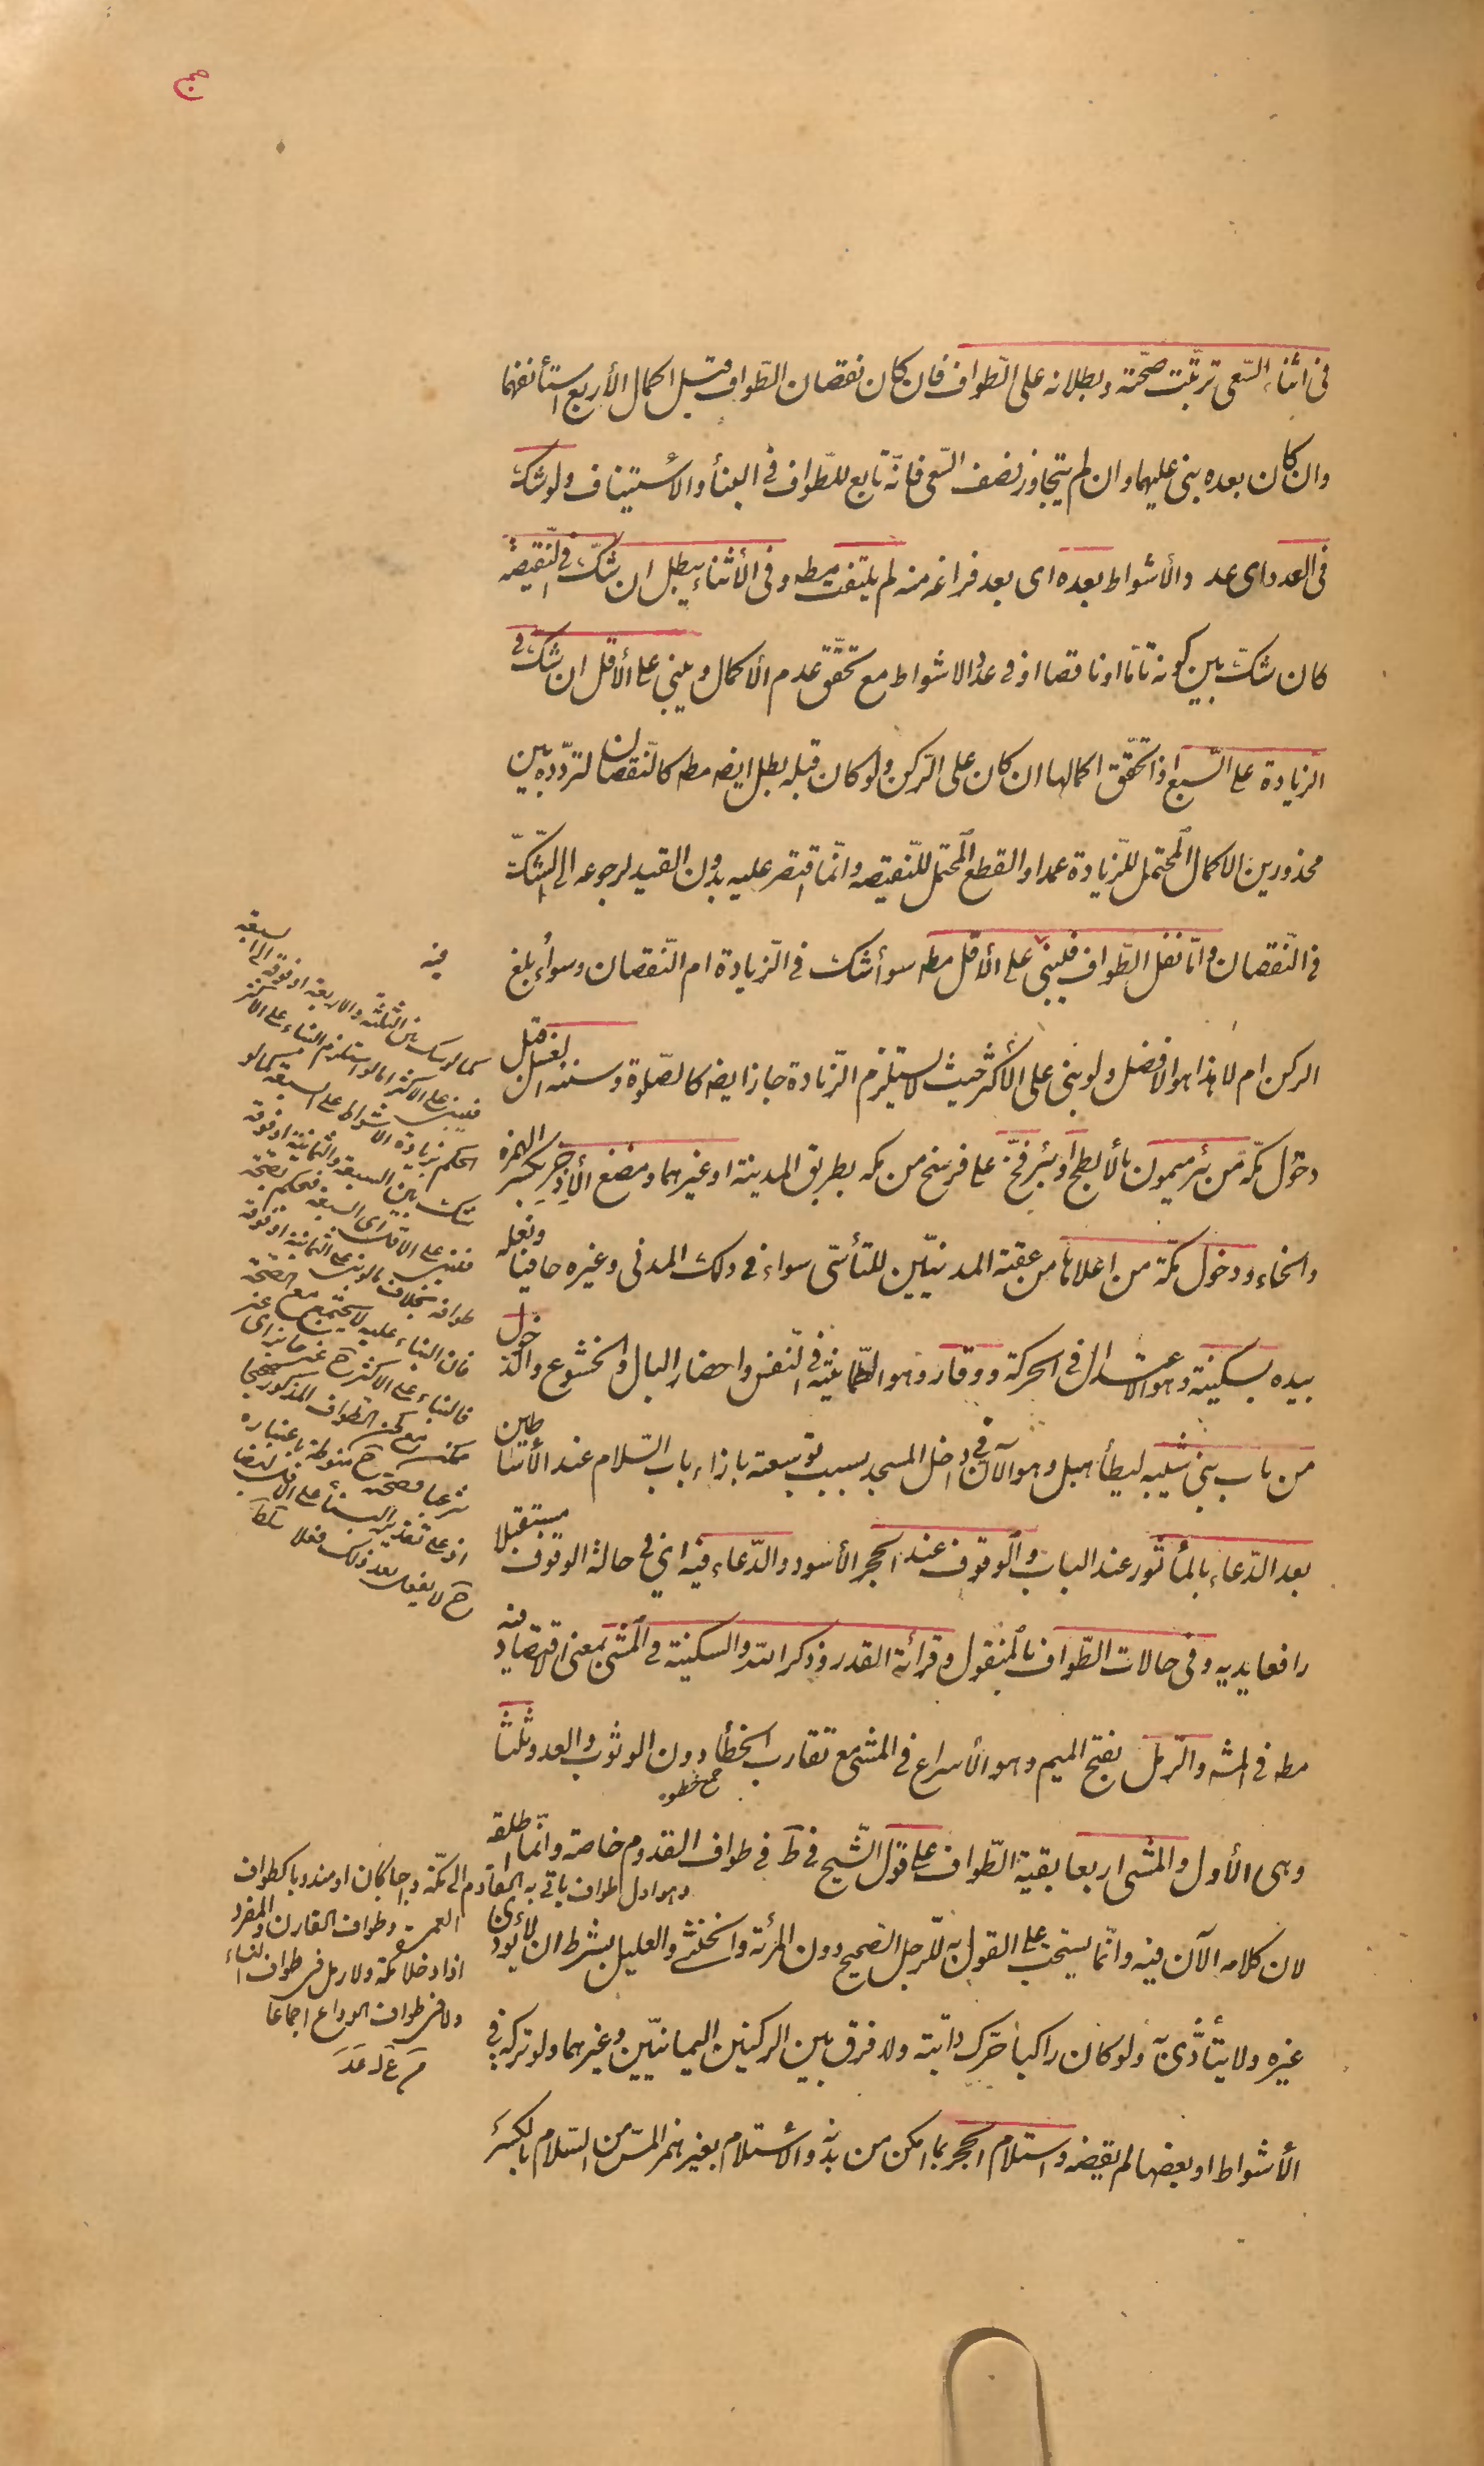 فى اثناء السّعى ترتّبت صحّته وبطلانه على الطّواف فان كان نقصان الطّواف قبل اكمال الأربع استأنفهما
وان كان بعده بنى عليهما وان لم يتجاوز نصف السّعى فانّه تابع للطّواف فى البنأ والأستيناف ولو شكّ
فى العدد اى عدد الأشواط بعده اى بعد فراغه منه لم يلتفت مطه وفى الأثناء يبطل ان شكّ فى النّقيصة
كان شكّ بين كونه تامّا او ناقصا او فى عدد الاشواط مع تحقّق عدم الأكمال ويبنى على الأقل ان شكّ فى
الزيادة على السّبع اذا تحقّق اكمالها ان كان على الرّكن ولو كان قبله بطل ايضه مطه كالنّقصان لتردّده بين
محذورين الاكمال المحتمل للزّيادة عمدا والقطع المحتمل للنّقيصه وانّما اقتصر عليه بدون القيد لرجوعه الى الشّكّ
فى النّقصان وامّا نفل الطّواف فيبنى فيه على الأقل مطه سوأ شكّ فى الزّيادة ام النّقصان وسوأء بلغ
الركن ام لا هذا هو الافضل ولو بنى على الأكثر حيث لا يستلزم الزّيادة جاز ايضه كالصّلوة وسننه الغسل قبل
دخول مكّة من بئر ميمون بالأبطح او بئر فخّ على فرسخ من مكه بطريق المدينة او غيرهما ومضغ الأذخر بكسر الهمزة
والخاء ودخول مكّة من اعلاها من عقبة المدنيّين للتأسّى سواء فى ذلك المدنى وغيره حافيا ونعله
بيده بسكينة وهو الاعتدال فى الحركة ووقار وهو الطّمانينة فى النّفس واحضار البال والخشوع والدّخول
من باب بنى شيبه ليطأ هبل وهو الآن فى داخل المسجد بسبب توسعته بازاء باب السّلام عند الأساطين
بعد الدّعاء بالمأثور عند الباب والوقوف عند الحجر الأسود والدّعاء فيه اى فى حالة الوقوف مستقبلا
رافعا يديه وفى حالات الطّواف بالمنقول وقرأئة القدر وذكر الله والسكينة فى المشى بمعنى الاقتصاد فيه
مطه فى المشه والرّمل بفتح الميم وهو الأسراع فى المشى مع تقارب الخطأ دون الوثوب والعدو ثلثا
جمع خطوه
وهى الأول والمشى اربعا بقية الطّواف على قول الشّيخ فى ط فى طواف القدوم خاصة وانّما اطلقه
لان كلامه الآن فيه وانّما يستحبّ على القول به للرّجل الصّحيح دون المرئة والخنثى والعليل بشرط ان لا يؤذى
غيره ولا يتأذّى به ولو كان راكبا حرّك دابّته ولا فرق بين الركنين اليمانيّين وغيرهما ولو تركه فى
الأشواط او بعضها لم يقضه واستلام الحجر بما امكن من بدنه والأستلام بغير همز المسّ من السّلام بالكسر
كما لو شك بين الثلثة والاربعة او فوقه الى السبعة
فيبنى على الاكثر اما لو استلزم البناء على الاكثر
الحكم بزيادة الاشواط على السبعة كما لو
شك بين السبعة والثمانية او فوقه
فيبنى على الاقل اى السبعة فيحكم بصحة
طوافه بخلاف ما لو بنى على الثمانية او فوقه
فان البناء عليه لا يجتمع مع الصّحة
فالبناء على الاكثر ح غير جائز اى غير
ممكن مع كون الطواف المذكور صحيحا
شرعا وصحته ح منوطة باعتباره
وهو اول طواف ياتى به القادم الى مكّة واجبا كان او مندوبا كطواف
العمرة وطواف القارن والمفرد
اذا دخلا مكة ولا رمل فى طواف النساء
ولا فى طواف الوداع اجماعا